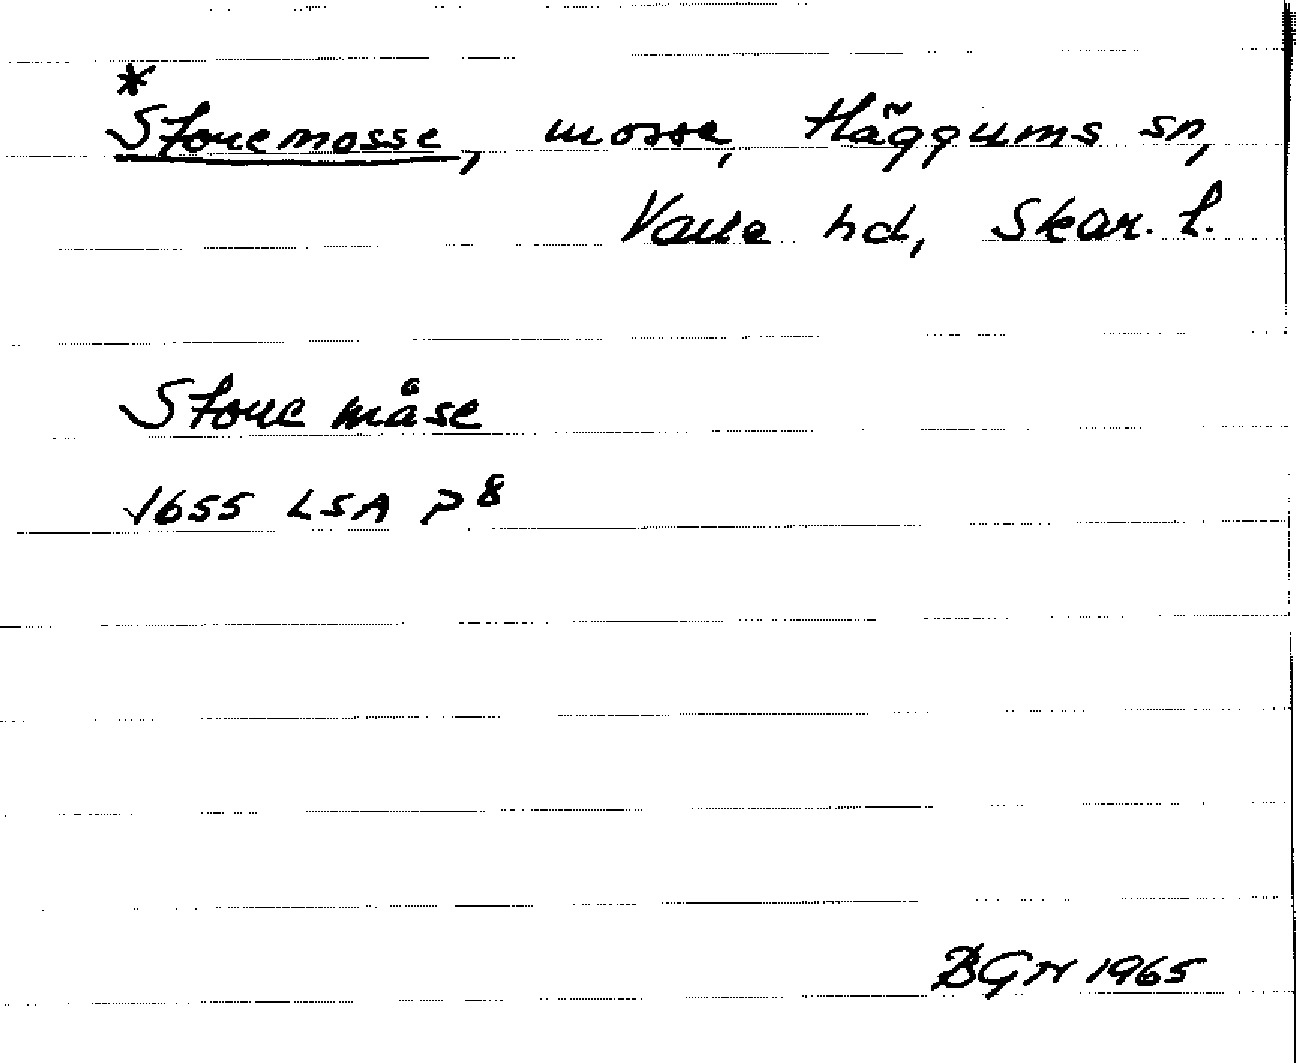 *
Storemosse, mosse, Häggums sn,
Valle hd, Skar. l.
Store måse
1655 LSA P 8
BGN 1965